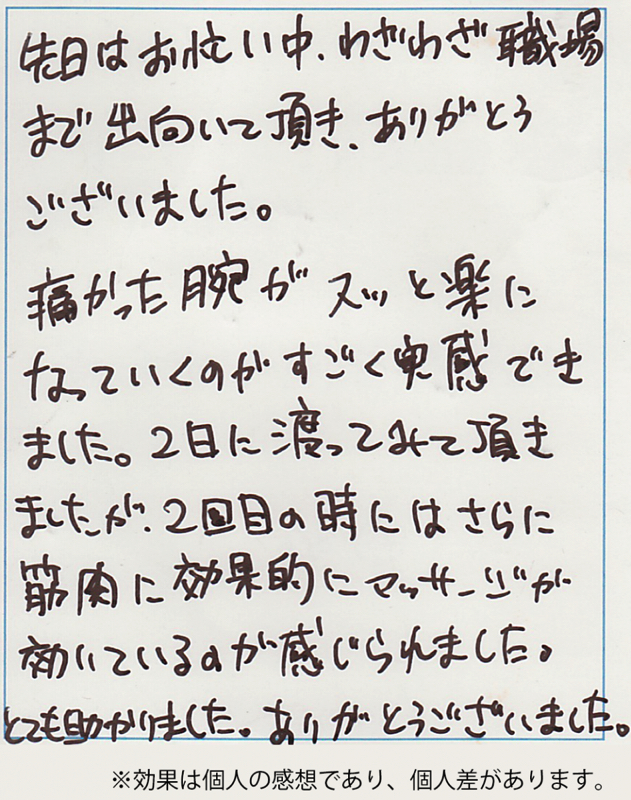 先日はお忙い中、わざわざ職場
まで出向いて頂き、ありがとう
ございました。
痛かった腕がスッと楽に
なっていくのがすごく実感でき
ました。2日に渡ってみて頂き
ましたが、2回目の時にはさらに
筋肉に効果的にマッサージが
効いているのが感じられました。
とても助かりました。ありがとうございました。
※効果は個人の感想であり、個人差があります。